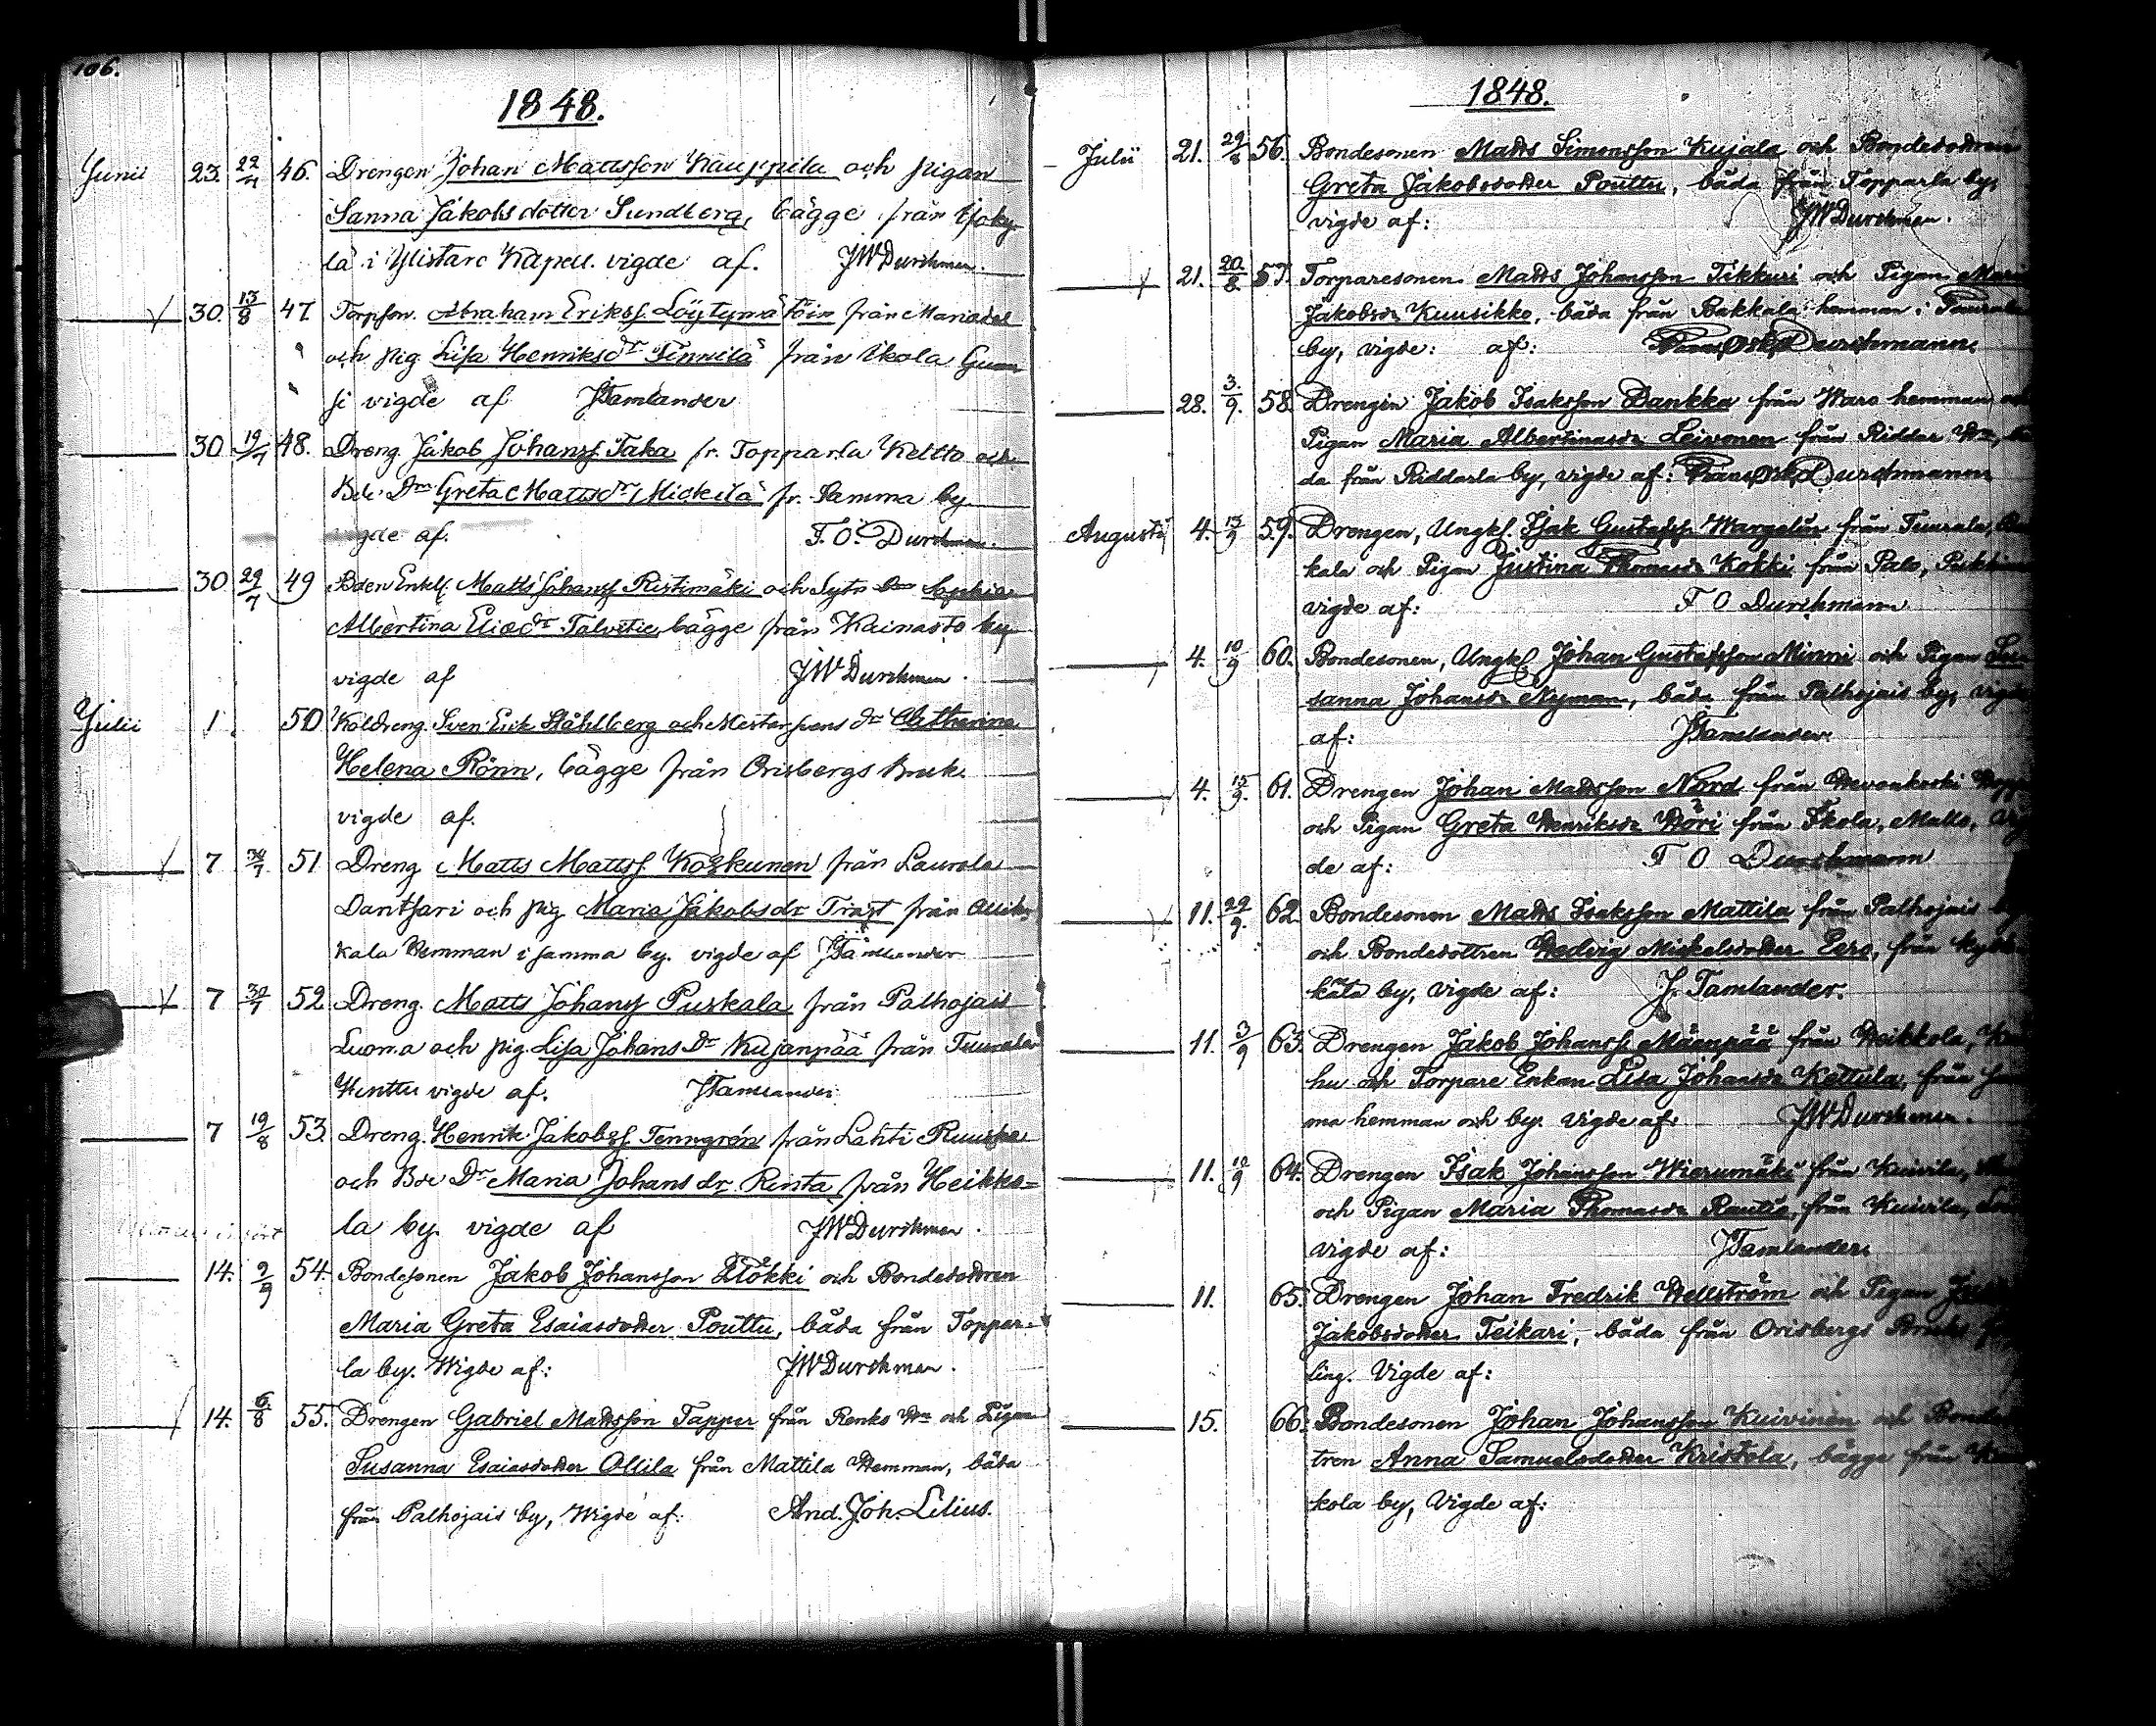 106.
1848.
Junii 23. 22/7 46. Drengen Johan Mattsson Kauppila och pigan
Sanna Jakobsdotter Sundberg, bägge från
la i Ylistaro Kapell. vigde af. JWDurchman.
30. 13/8 47 Torpson. Abraham Erikss. från
och pig Lisa Henriksdr från Ikola
si vigde af JTamlander
30 19/7 48. Dreng. Jakob Johanss. Taka fr. Topparla Keltto och
Bde Dn Greta Mattsdr Mickilä fr. Samma by
vigde af. F. O. Durchman.
30 29/7 49 Matts Johanss Ristimäki och Sophia
Albertina Eliædr Talvitie bägge från Kainasto by
vigde af JWDurchman.
Julii 1. 50 Koldreng. Sven Erik Ståhlberg och dr Catharina
Helena Rönn, bägge från Orisbergs Bruk.
vigde af.
7 30/7 51 Dreng Matts Mattss. Koskunen från Laurola
och pig Maria Jakobsdr från
kala Hemman i samma by. vigde af JTamlander
7 30/7 52 Dreng. Matts Johanss Puskala från Palhojais
Luoma och pig. Lisa Johans Dr Kujanpää från Tuurala
Hinttu vigde af. JTamlander
7 19/8 53. Dreng. Henrik Jakobss Tenngrén från Lahti
och Bde Dr Maria Johans dr. Rinta från Heikko=
la by. vigde af JWDurchman.
14. 9/9 54. Bondesonen Jakob Johansson och Bondedottren
Maria Greta Esaiasdotter Pouttu, båda från Toppar-
la by. Wigde af: JWDurchman.
14. 6/8 55. Drengen Gabriel Mattsson Tapper från Renko Hn och Pigan
Susanna Esaiasdotter Ollila från Mattila Hemman, båda
från Palhojais by, Wigde af: And. Joh. Lilius.
1848.
Julii 21. 56. Bondesonen Matts Simonsson Kujala och Bondedottren
Greta Jakobsdotter Pouttu, båda från Topparla by,
vigde af: JWDurchman.
21. 20/8. 57. Torparesonen Matts Johansson Tikkuri och Pigan Maria
Jakobsdr Kuusikko, båda från Bakkala hemman i
by, vigde: af: Durchmann.
28. 3./9. 58. Drengen Jakob Isaksson Dankka från Waro hemman och
Pigan Maria Albertinasdr Leivonen från Riddar Hn,
da från Riddarla by, vigde af: Durchmann
Augusti 4. 13/9 59. Drengen, Ungkl. Isak Gustafss. från Tuurala,
kala och Pigan Justina Thomasdr Kokki från Palo,
vigde af: F O Durchmann
4. 10/9 60. Bondesonen, Ungkl. Johan Gustafsson Minni och Pigan Su-
sanna Johansdr Nyman, båda från Palhojais by, vigde
af: JTamlander.
4. 15/9. 61. Drengen Johan Mattsson Nord från
och Pigan Greta Henriksdr Wöri från Ikola, Matto,
de af: F O Durchmann
11. 62. Bondesonen Matts Isaksson Mattila från Palhojais by
och Bondedottren Hedvig Mickelsdotter Eero, från
by, vigde af: J. Tamlander.
11. 3/9 63. Drengen Jakob Johanss. Mäenpää från Heikkola,
hu och Torpare Enkan Lisa Johansdr Kettula, från sam
ma hemman och by. Vigde af: JWDurchman.
11. 10/9 64. Drengen Isak Johansson Wierumäki från Kuivila,
och Pigan Maria Thomasdr Rautio, från Kuivila,
vigde af: JTamlander
11. 65. Drengen Johan Fredrik Hellström och Pigan
Jakobsdotter Teikari, båda från Orisbergs Bruks
ling. Vigde af:
15. 66. Bondesonen Johan Johansson Kuivinen och
tren Anna Samuelsdotter Kristola, bägge från
kola by, Vigde af: